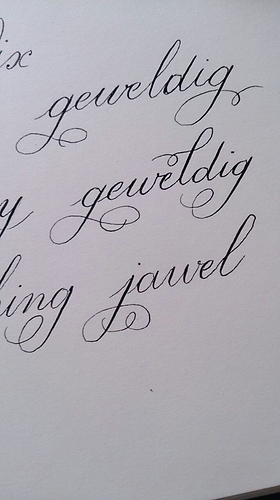 ix
geweldig
y geweldig
ing jawel